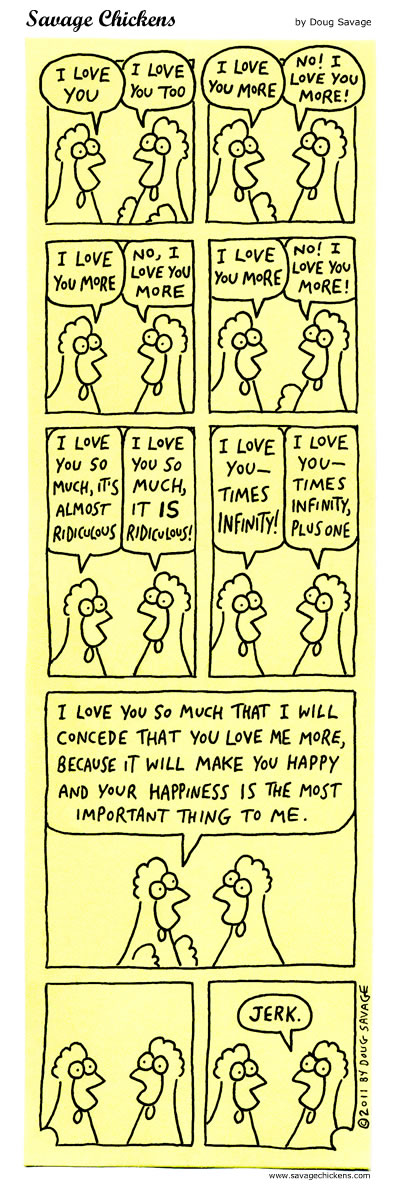 Savage Chickens
by Doug Savage
I LOVE
YOU
I LOVE
YOU TOO
I LOVE
YOU MORE
NO! I
LOVE YOU
MORE!
I LOVE
YOU MORE
NO, I
LOVE YOU
MORE
I LOVE
YOU MORE
NO! I
LOVE YOU
MORE!
I LOVE
YOU SO
MUCH, IT'S
ALMOST
RIDICULOUS
I LOVE
YOU SO
MUCH,
IT IS
RIDICULOUS!
I LOVE
YOU—
TIMES
INFINITY!
I LOVE
YOU—
TIMES
INFINITY,
PLUS ONE
I LOVE YOU SO MUCH THAT I WILL
CONCEDE THAT YOU LOVE ME MORE,
BECAUSE IT WILL MAKE YOU HAPPY
AND YOUR HAPPINESS IS THE MOST
IMPORTANT THING TO ME.
JERK.
©2011 BY DOUG SAVAGE
www.savagechickens.com